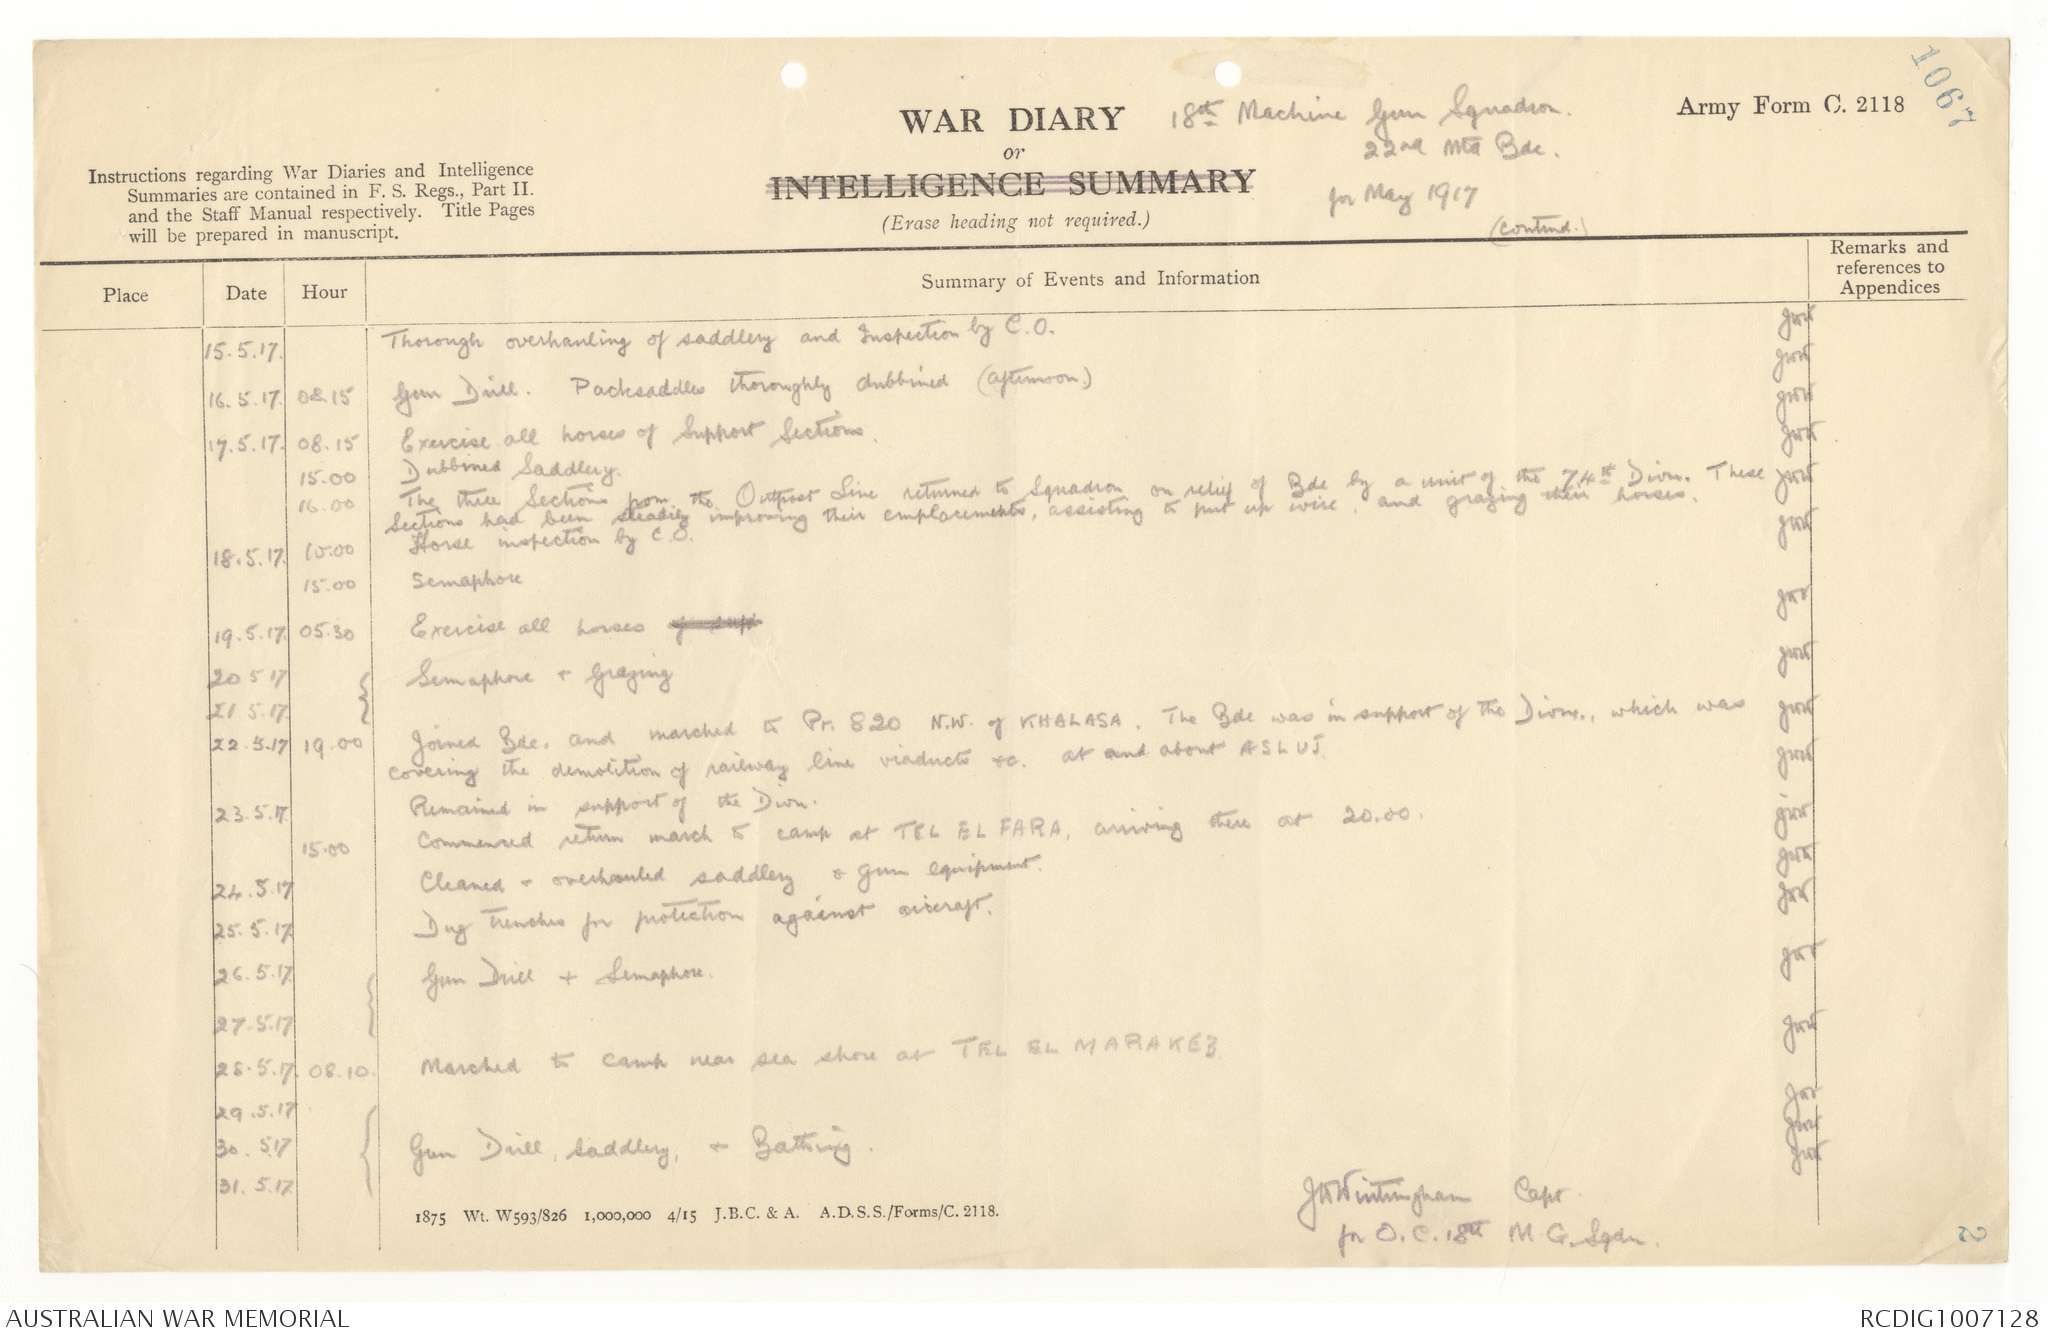 1067
WAR DIARY
or
INTELLIGENCE SUMMARY
(Erase heading not required.)
18th Machine Gun Squadron.
22nd Mtd Bde.
for May 1917
(contind.)
Army Form C. 2118
Instructions regarding War Diaries and Intelligence
Summaries are contained in F. S. Regs., Part II.
and the Staff Manual respectively. Title Pages
will be prepared in manuscript.
Place Date Hour Summary of Events and Information Remarks and references to Appendices
15.5.17. Thorough overhauling of saddlery and Inspection by C.O. JWW
JWW
16.5.17. 08.15 Gun Drill. Packsaddles thoroughly dubbined (afternoon.) JWW
17.5.17. 08.15 Exercise all horses of Support Sections. JWW
15.00 Dubbined Saddlery.
16.00 The three Sections from the Outpost Line returned to Squadron on relief of Bde by a unit of the 74th Divn. These JWW
Sections had been steadily improving their emplacements, assisting to put up wire, and grazing their horses.
18.5.17. 10.00 Horse inspection by C.O. JWW
15.00 Semaphore
JWW
19.5.17. 05.30 Exercise all horses of supt
20 5 17 Semaphore + Grazing JWW
21 5.17.
22.5.17 19.00 Joined Bde. and marched to Pt. 820 N.W. of KHALASA. The Bde was in support of the Divn., which was JWW
covering the demolition of railway line viaducts &c. at and about ASLUJ. JWW
23.5.17. Remained in support of the Divn.
15.00 Commenced return march to camp at TEL EL FARA, arriving there at 20.00. JWW
24.5.17 Cleaned + overhauled saddlery & gun equipment. JWW
25.5.17. Dug trenches for protection against aircraft. JWW
26.5.17. Gun Drill + Semaphore. JWW
27.5.17 JWW
28.5.17. 08.10. Marched to camp near sea shore at TEL EL MARAKEB
29.5.17 JWW
30.5.17 Gun Drill, saddlery, + Bathing. JWW
31.5.17. JWW
JWWintringham Capt.
for O.C. 18th M.G. Sqdn.
1875 Wt. W593/826 1,000,000 4/15 J.B.C. & A. A.D.S.S./Forms/C. 2118.
2
AUSTRALIAN WAR MEMORIAL
RCDIG1007128